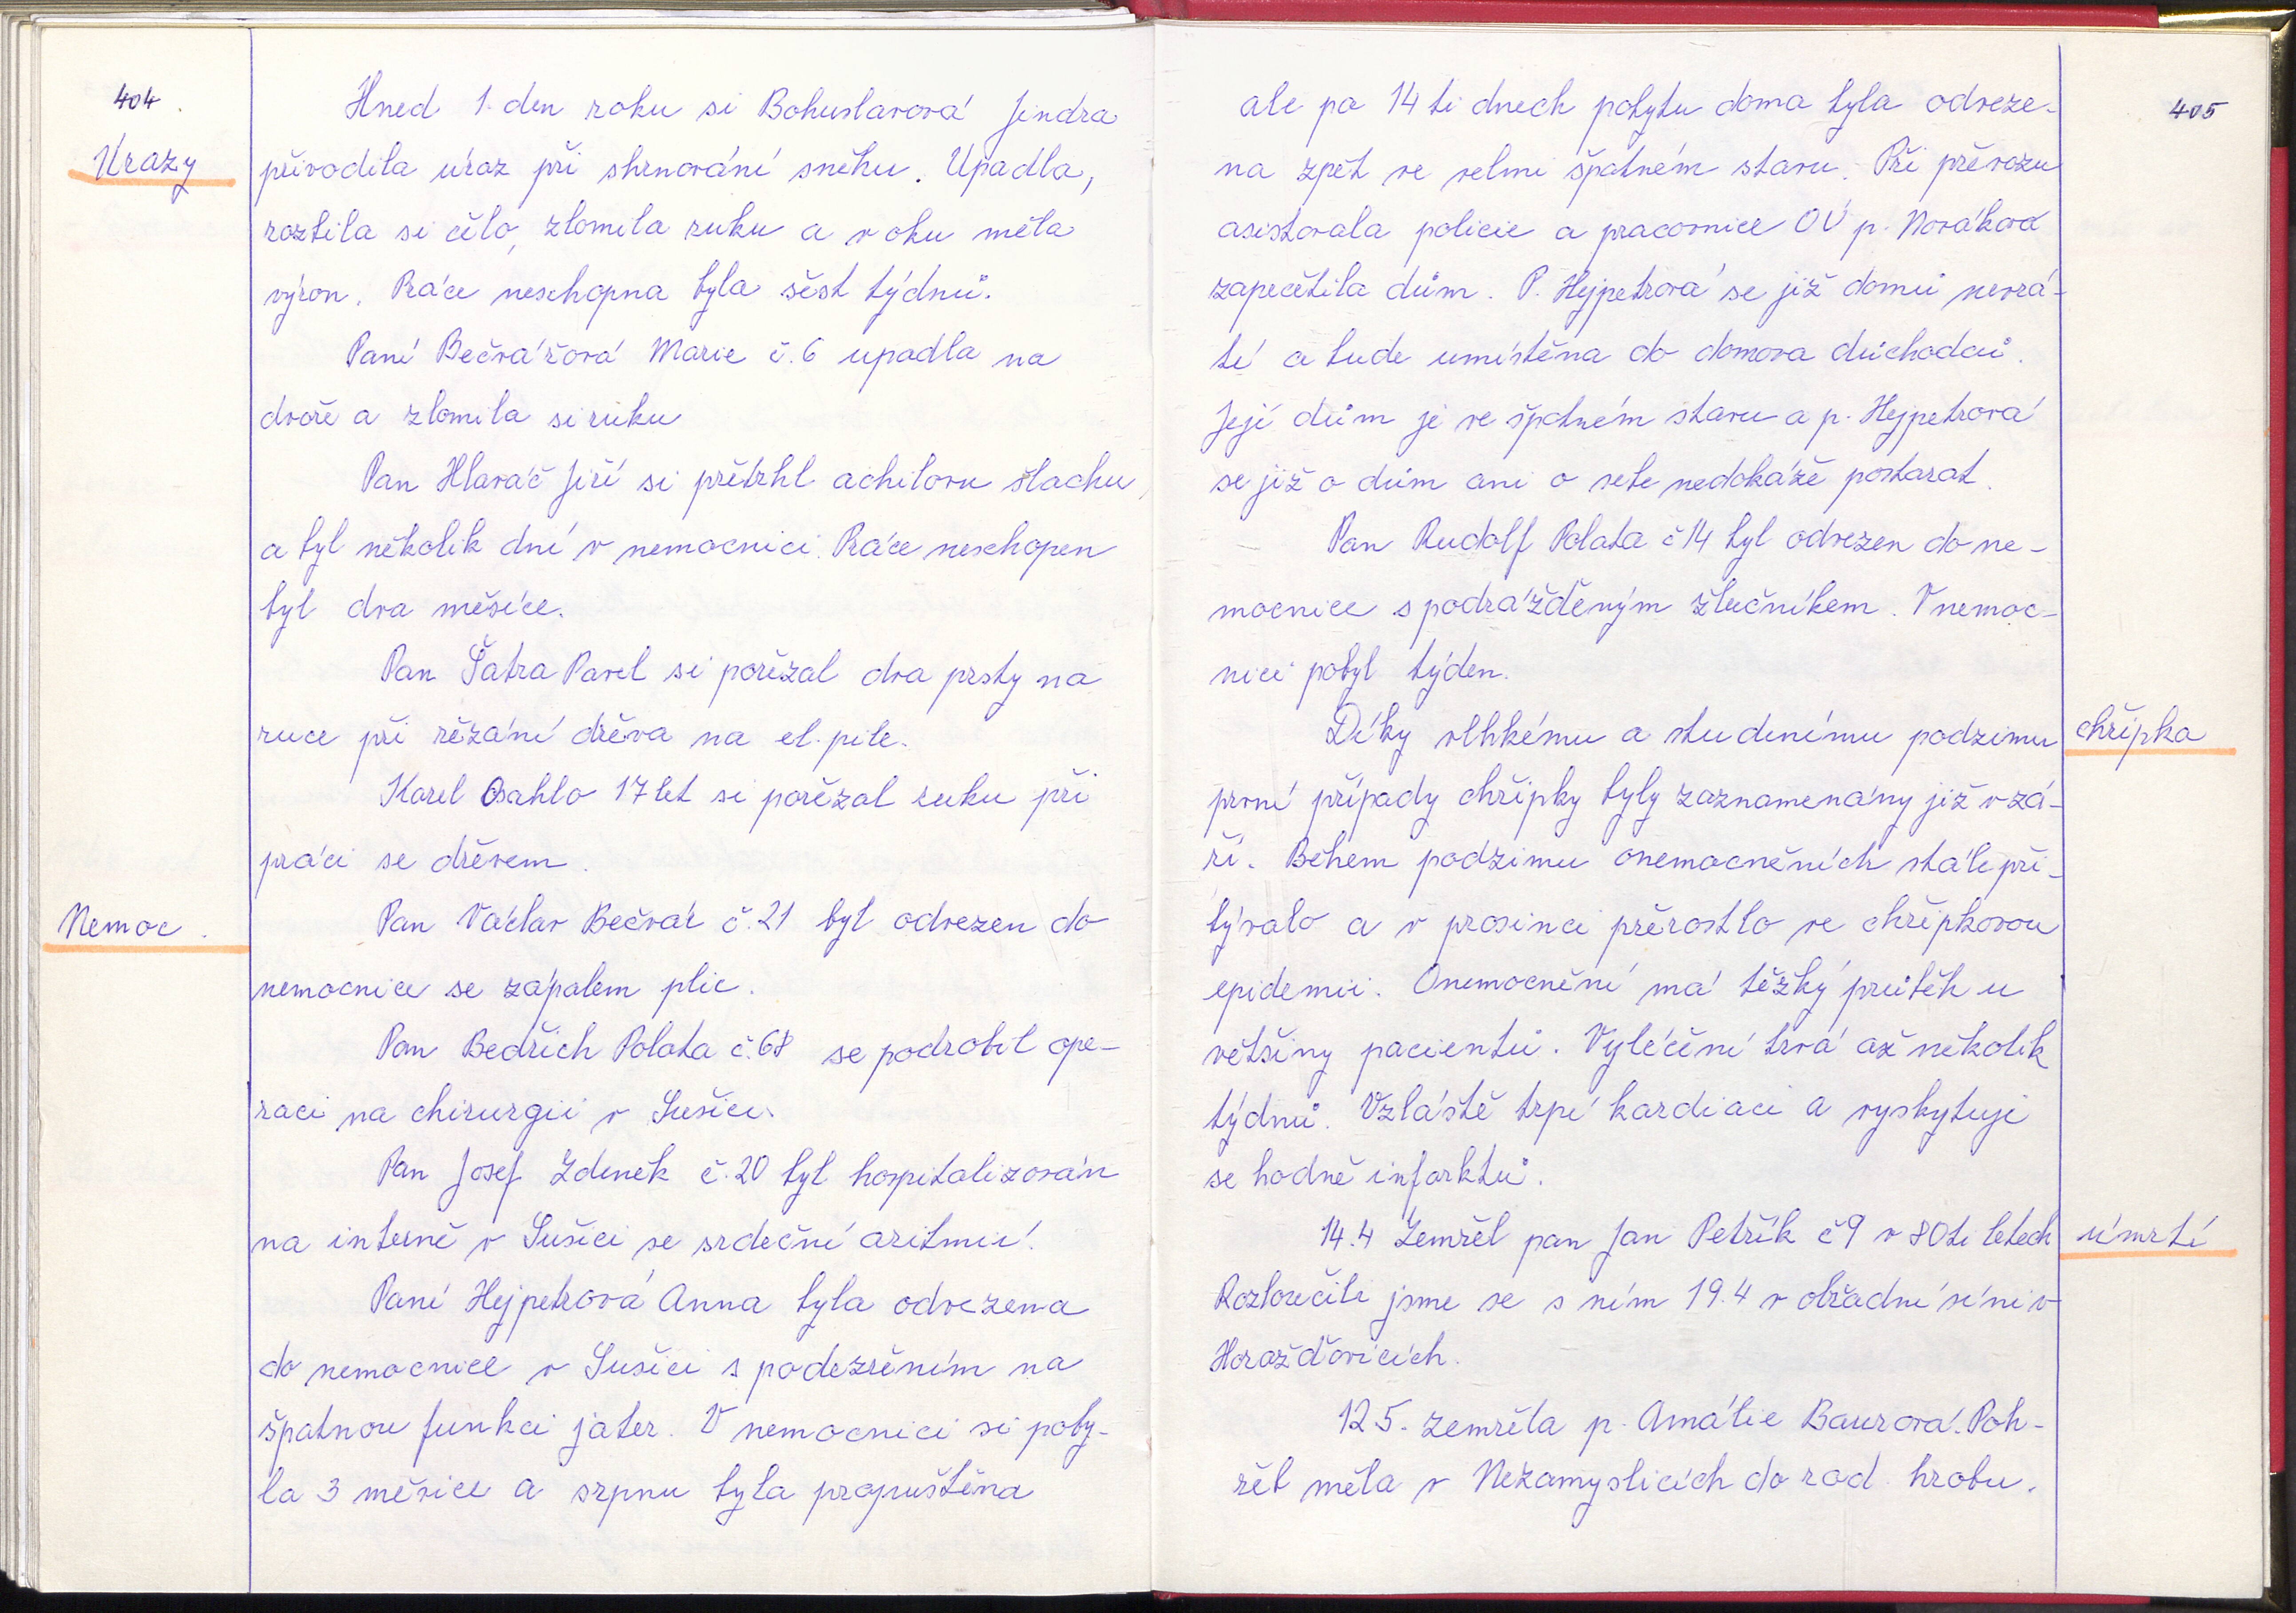 404
Úrazy
Hned 1. den roku si Bohuslavová Jindra
přivodila úraz při shrnování sněhu. Upadla,
rozbila si čelo, zlomila ruku a v oku měla
výron. Práce neschopna byla šest týdnů.
Paní Bečvářová Marie č. 6 upadla na
dvoře a zlomila si ruku
Pan Hlaváč Jiří si přetrhl achilovu šlachu,
a byl několik dní v nemocnici. Práce neschopen
byl dva měsíce.
Pan Šatra Pavel si pořezal dva prsty na
ruce při řězání dřeva na el. pile.
Karel Osahlo 17 let si pořezal ruku při
práci se dřevem.
Nemoc.
Pan Václav Bečvář č. 21 byl odvezen do
nemocnice se zápalem plic.
Pan Bedřich Polata č. 68 se podrobil ope-
raci na chirurgii v Sušici.
Pan Josef Zdeněk č. 20 byl hospitalizován
na interně v Sušici se srdeční aritmií.
Paní Hejpetrová Anna byla odvezena
do nemocnice v Sušici s podezřením na
špatnou funkci jater. V nemocnici si poby-
la 3 měsíce a srpnu byla propuštěna
405
ale po 14 ti dnech pobytu doma byla odveze-
na zpět ve velmi špatném stavu. Při převozu
asistovala policie a pracovnice OÚ p. Nováková
zapečetila dům. P. Hejpetrová se již domů nevrá-
tí a bude umístěna do domova důchodců.
Její dům je ve špatném stavu a p. Hejpetrová
se již o dům ani o sebe nedokáže postarat.
Pan Rudolf Polata č 14 byl odvezen do ne-
mocnice s podrážděným žlučníkem. V nemoc-
nici pobyl týden.
chřipka
Díky vlhkému a studenému podzimu
první případy chřipky byly zaznamenány již v zá-
ří. Během podzimu onemocněních stále při-
bývalo a v prosinci přerostlo ve chřipkovou
epidemii. Onemocnění má těžký průběh u
většiny pacientů. Vyléčení trvá až několik
týdnů. Vzláště trpí kardiaci a vyskytuji
se hodně infarktů.
úmrtí
14.4 Zemřel pan Jan Petřík č 9 v 80ti letech
Rozloučili jsme se s ním 19.4 v obřadní síni v
Horažďovicích.
12 5. zemřela p. Amálie Baurová. Poh-
řeb měla v Nezamyslicích do rod. hrobu.